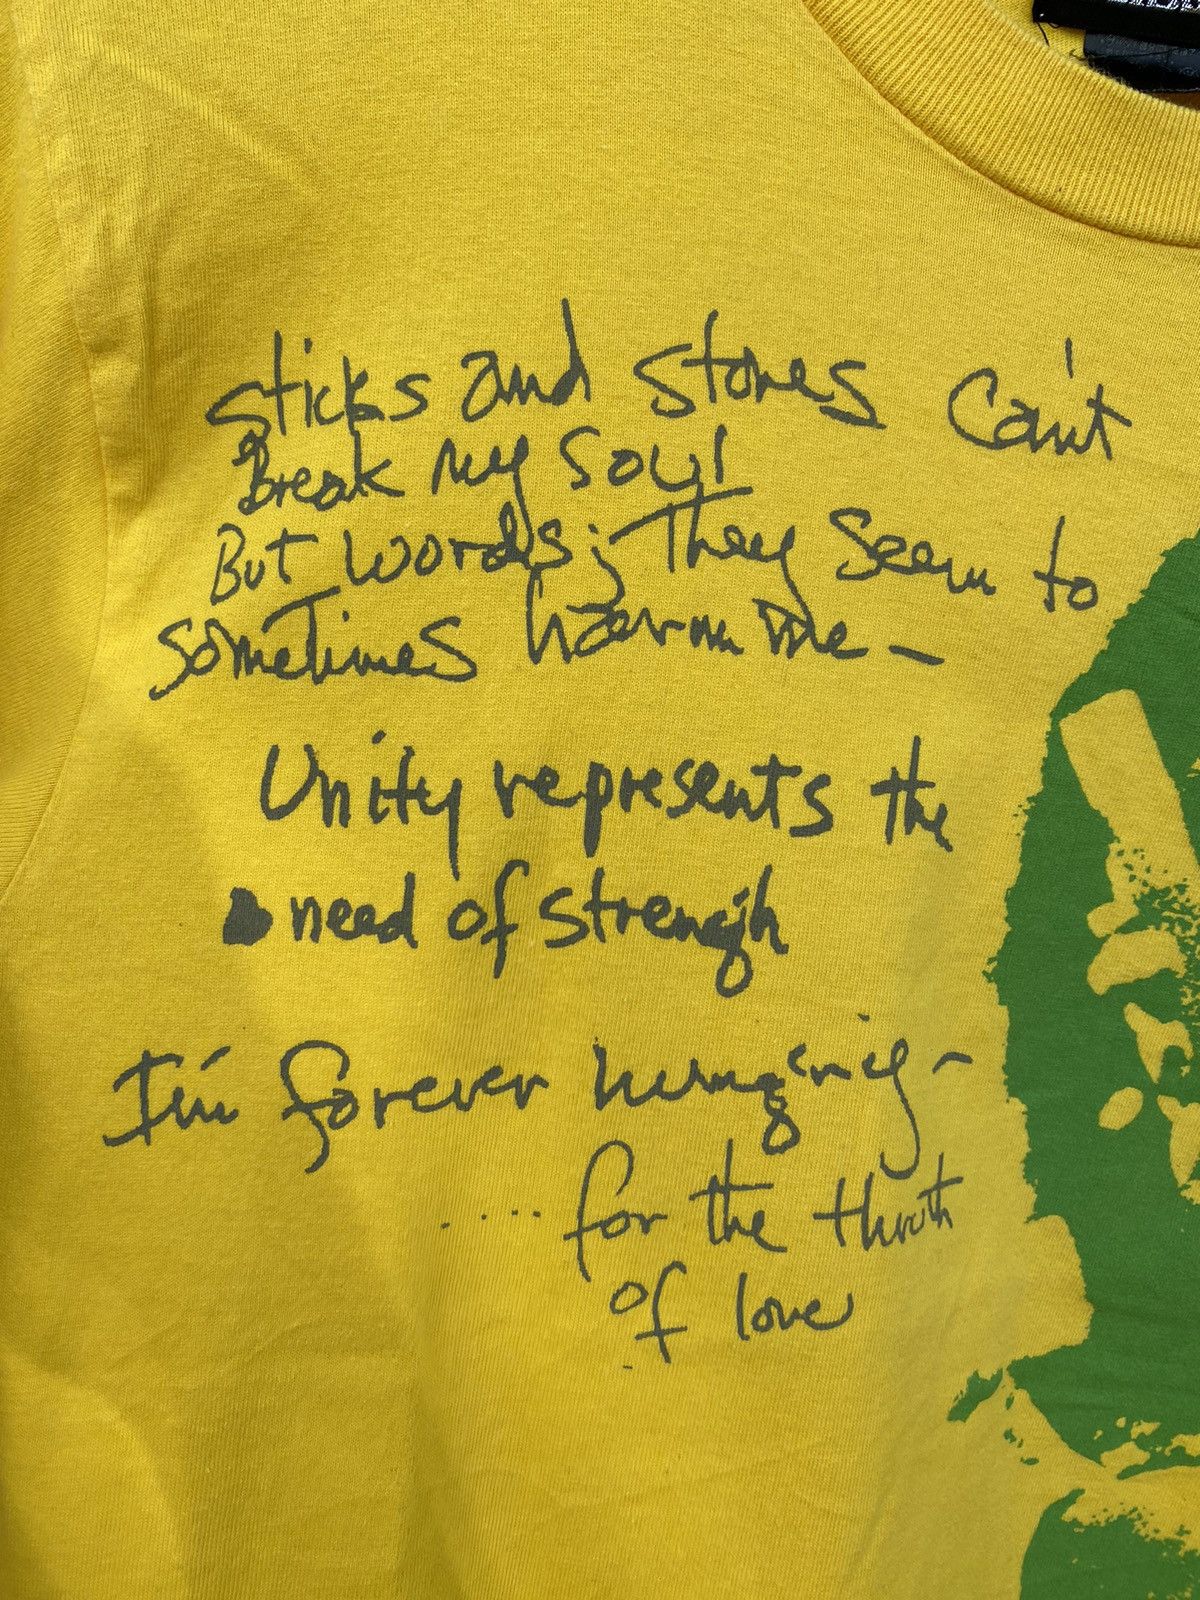 sticks and stones can't
Break my soul
But words; They seem to
sometimes harm me –
Unity represents the
need of strengh
I'm forever hungrig –
.... for the thruth
of love